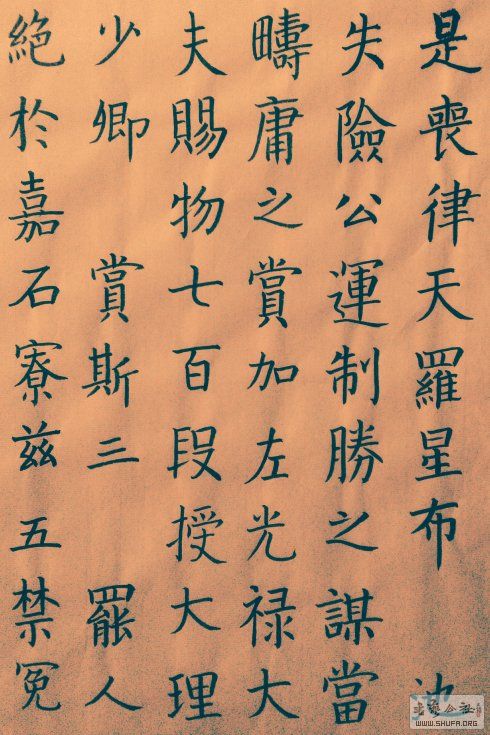 是喪律天羅星布
失險公運制勝之謀當
疇庸之賞加左光禄大
夫賜物七百段授大理
少卿 賞斯三 罷人
絶於嘉石寮兹五禁冤
WWW.SHUFA.ORG